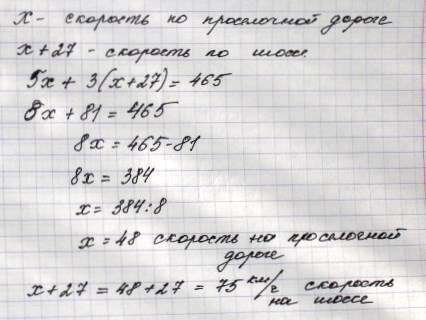 x - скорость по проселочной дороге
x+27 - скорость по шоссе
5x + 3(x+27) = 465
8x + 81 = 465
8x = 465-81
8x = 384
x = 384:8
x = 48 скорость по проселочной
дороге
x+27 = 48+27 = 75 км/ч скорость
на шоссе